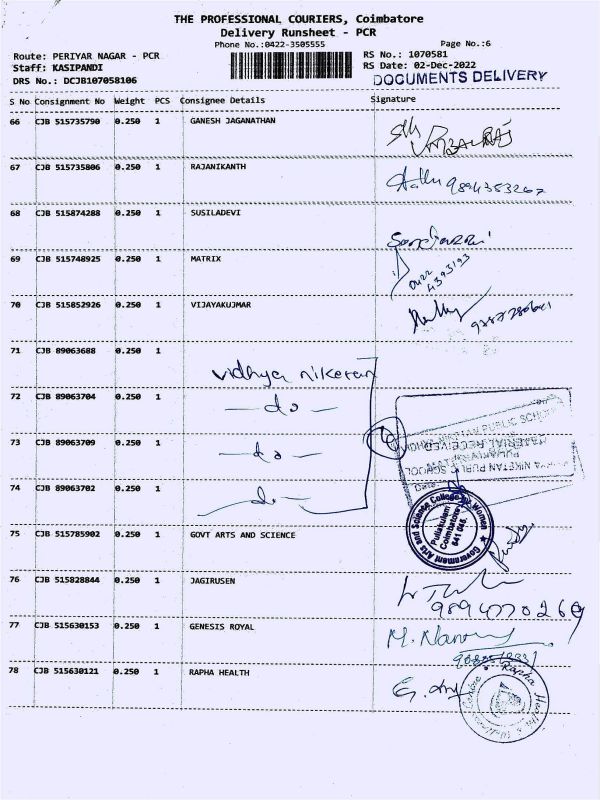 THE PROFESSIONAL COURIERS, Coimbatore
Delivery Runsheet - PCR
Phone No.:0422-3505555
Page No.:6
Route: PERIYAR NAGAR - PCR
RS No.: 1070581
Staff: KASIPANDI
RS Date: 02-Dec-2022
DRS No.: DCJB107058106
DOCUMENTS DELIVERY
S No Consignment No Weight PCS Consignee Details Signature
66 CJB 515735790 0.250 1 GANESH JAGANATHAN
67 CJB 515735806 0.250 1 RAJANIKANTH
9894353267
68 CJB 515874288 0.250 1 SUSILADEVI
69 CJB 515748925 0.250 1 MATRIX
0422
4393193
70 CJB 515852926 0.250 1 VIJAYAKUJMAR
71 CJB 89063688 0.250 1 vidhya niketan
72 CJB 89063704 0.250 1 - do -
73 CJB 89063709 0.250 1 - do -
74 CJB 89063702 0.250 1 - do -
NIKETAN PUBLIC SCHOOL
MATERIAL RECEIVED
VIDHYA NIKETAN PUBLIC SCHOOL
75 CJB 515785902 0.250 1 GOVT ARTS AND SCIENCE
Government Arts and Science College for Women
Puliakulam
Coimbatore
641 045.
76 CJB 515828844 0.250 1 JAGIRUSEN
9894770269
77 CJB 515630153 0.250 1 GENESIS ROYAL
78 CJB 515630121 0.250 1 RAPHA HEALTH
Rapha Health & Wellness Centre